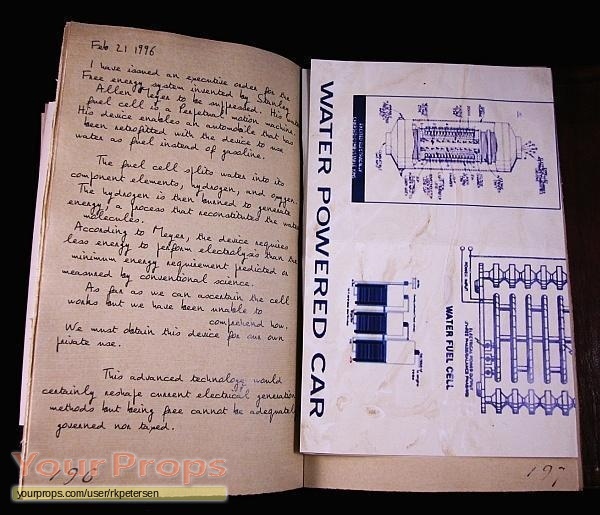 Feb 21 1996
I have issued an executive order for the
Free energy system invented by Stanley
Allen Meyer to be suppressed. His water
fuel cell is a Perpetual motion machine.
His device enables an automobile that has
been retrofitted with the device to use
water as fuel instead of gasoline.
The fuel cell splits water into its
component elements, hydrogen, and oxygen.
The hydrogen is then burned to generate
energy, a process that reconstitutes the water
molecules.
According to Meyer, the device requires
less energy to perform electrolysis than the
minimum energy requirement predicted or
measured by conventional science.
As far as we can ascertain the cell
works but we have been unable to
comprehend how.
We must obtain this device for our own
private use.
This advanced technology would
certainly reshape current electrical generation
methods but being free cannot be adequately
governed nor taxed.
196
WATER POWERED CAR
WATER FUEL CELL
197
YourProps
yourprops.com/user/rkpetersen